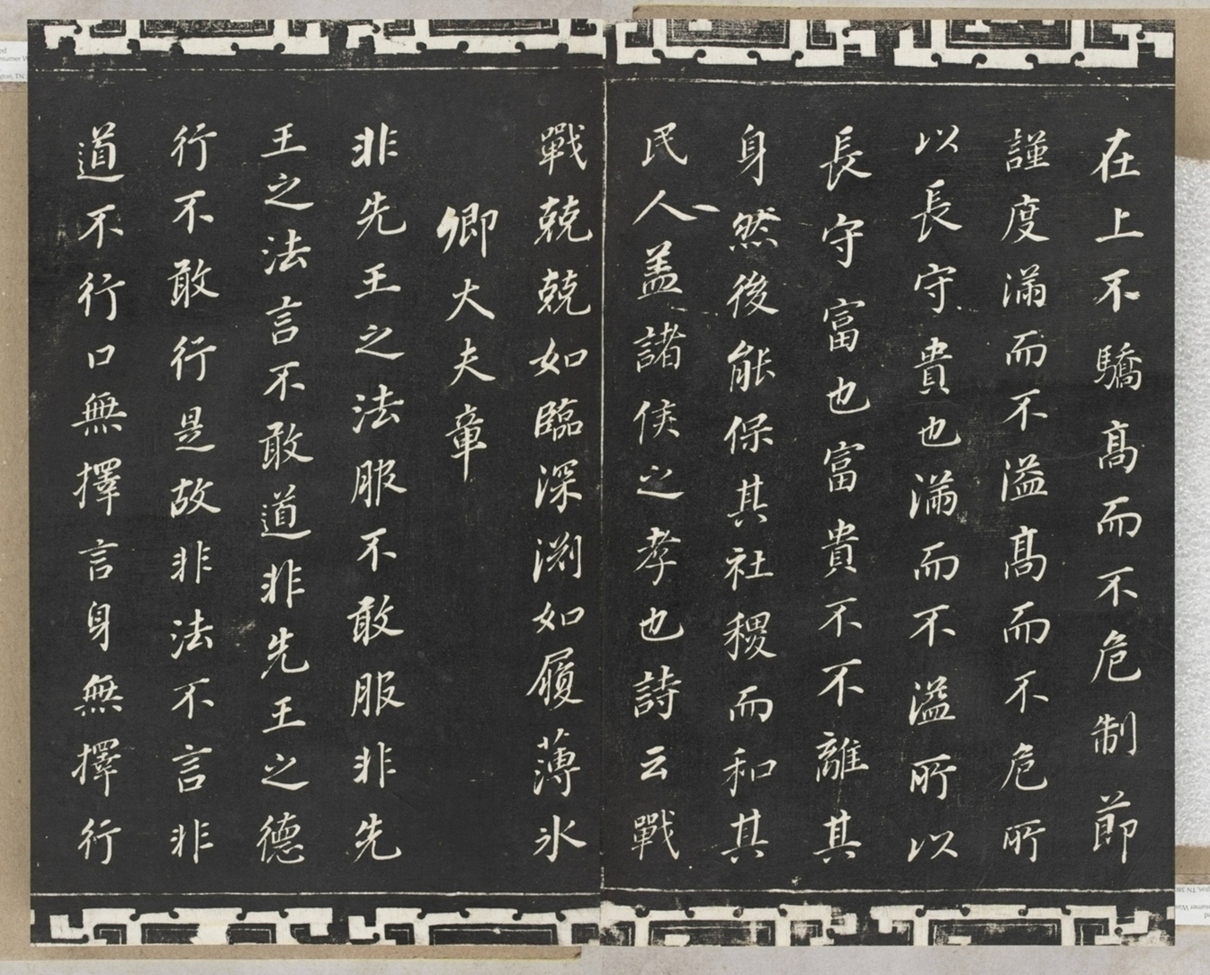 在上不驕高而不危制節
謹度滿而不溢高而不危所
以長守貴也滿而不溢所以
長守富也富貴不不離其
身然後能保其社稷而和其
民人盖諸侯之孝也詩云戰
戰兢兢如臨深淵如履薄氷
卿大夫章
非先王之法服不敢服非先
王之法言不敢道非先王之德
行不敢行是故非法不言非
道不行口無擇言身無擇行